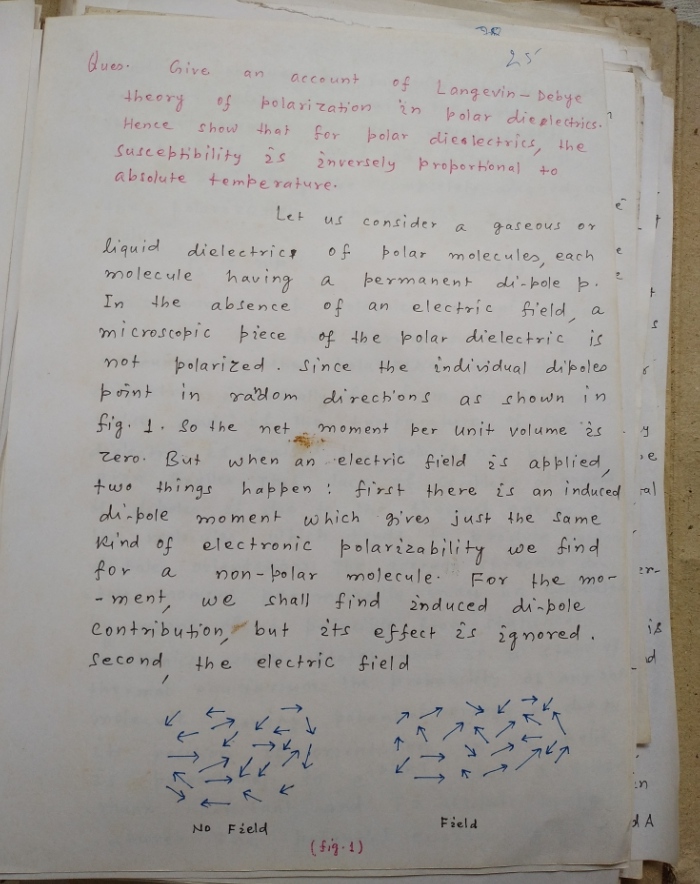 25
Ques. Give an account of Langevin-Debye
theory of polarization in polar dielectrics.
Hence show that for polar dielectrics, the
susceptibility is inversely proportional to
absolute temperature.
Let us consider a gaseous or
liquid dielectrics of polar molecules, each
molecule having a permanent di-pole p.
In the absence of an electric field, a
microscopic piece of the polar dielectric is
not polarized. Since the individual dipoles
point in random directions as shown in
fig. 1. So the net moment per unit volume is
zero. But when an electric field is applied,
two things happen: first there is an induced
di-pole moment which gives just the same
kind of electronic polarizability we find
for a non-polar molecule. For the mo-
-ment, we shall find induced di-pole
contribution, but its effect is ignored.
Second, the electric field
No Field
Field
(fig.1)